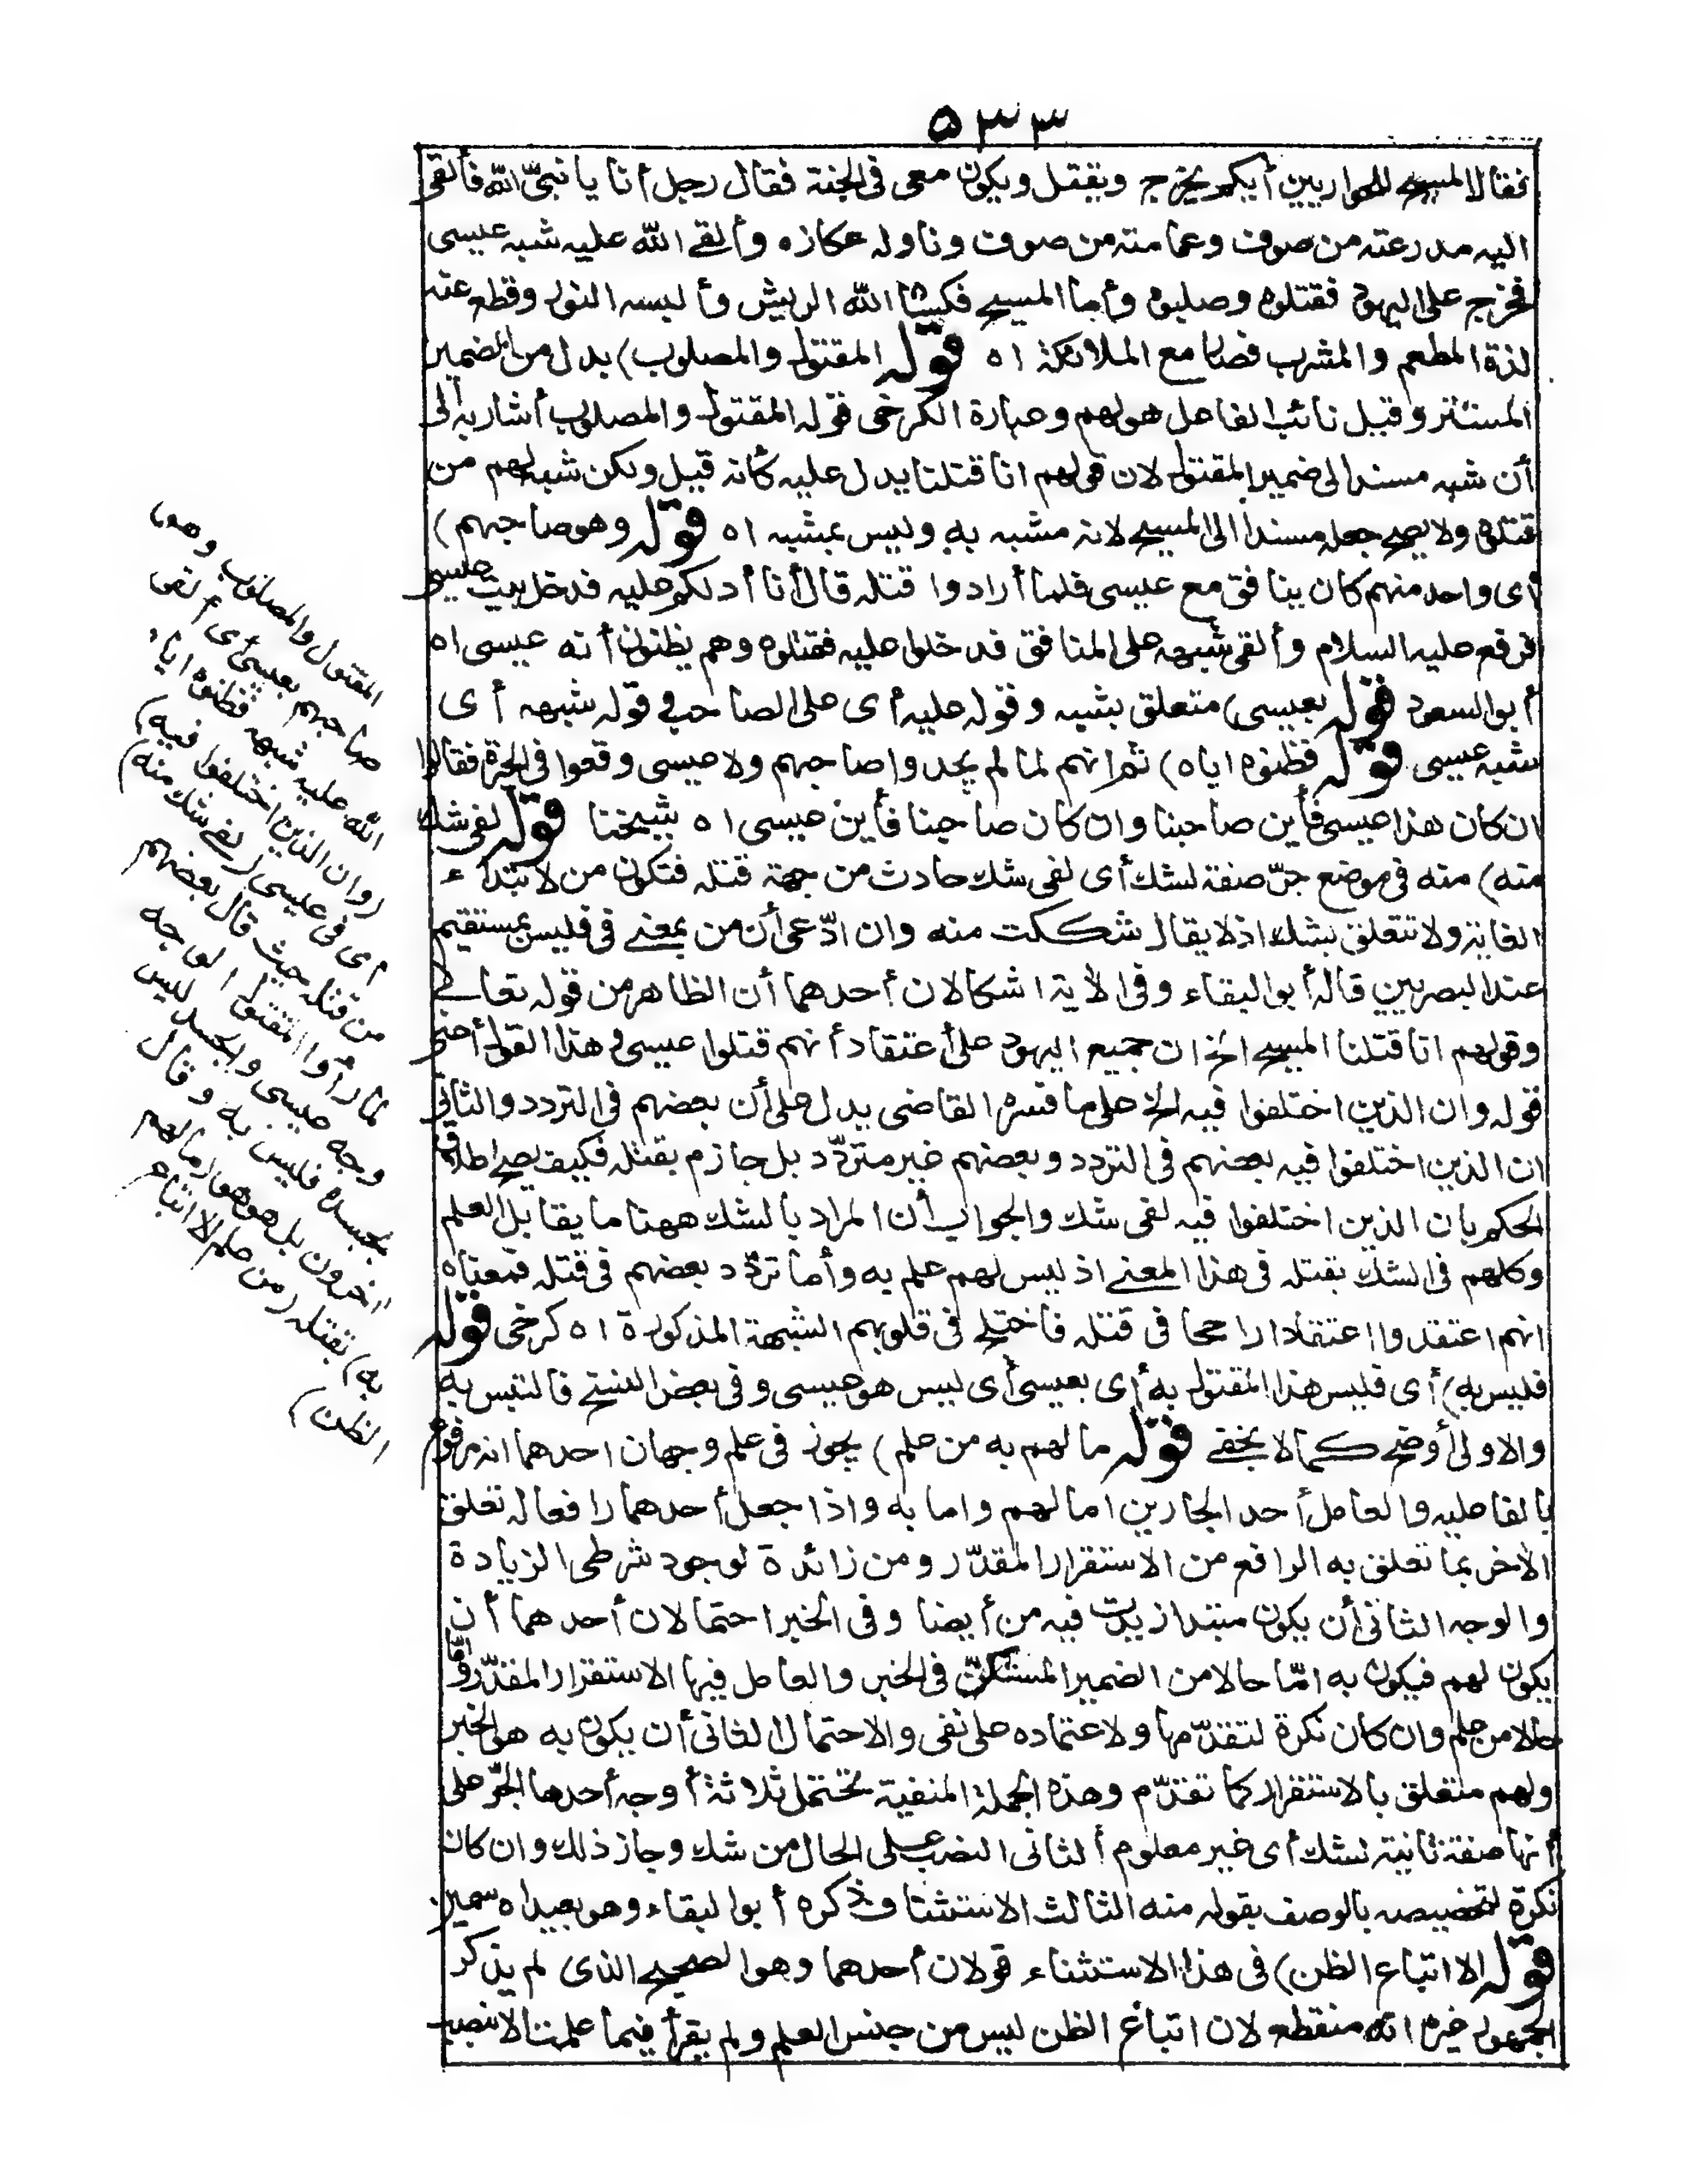 ٥٣٣
فقال المسيح للحواريين أيكم يخرج ويقتل ويكون معى فى الجنة فقال رجل أنا يا نبىّ الله فألقى
اليه مدرعته من صوف وعمامته من صوف وناوله عكازه وألقى الله عليه شبه عيسى
فخرج على اليهود فقتلوه وصلبوه وأما المسيح فكساه الله الريش وألبسه النور وقطع عنه
لذة المطعم والمشرب فصار مع الملائكة اه قوله المقتول والمصلوب) بدل من الضمير
المستتر وقيل نائب الفاعل هو لهم وعبارة الكرخى قوله المقتول والمصلوب أشار به الى
أن شبه مسند الى ضمير المقتول لان قولهم انا قتلنا يدل عليه كأنه قيل ولكن شبه لهم من
قتلوه ولا يصح جعله مسندا الى المسيح لانه مشبه به وليس بمشبه اه قوله وهو صاحبهم)
أى واحد منهم كان ينافق مع عيسى فلما أرادوا قتله قال أنا أدلكم عليه فدخل بيت عيسى
فرفع عليه السلام وألقى شبهه على المنافق فدخلوا عليه فقتلوه وهم يظنون أنه عيسى اه
أبو السعود قوله بعيسى) متعلق بشبه وقوله عليه أى على الصاحب فى قوله شبهه أى
شبه عيسى قوله فظنوه اياه) ثم انهم لما لم يجدوا صاحبهم ولا عيسى وقعوا فى الحيرة فقالوا
ان كان هذا عيسى فأين صاحبنا وان كان صاحبنا فأين عيسى اه شيخنا قوله لفى شك
منه) منه فى موضع جرّ صفة لشك أى لفى شك حادث من جهة قتله فتكون من لابتداء
الغاية ولا تتعلق بشك اذ لا يقال شككت منه وان ادّعى أن من بمعنى فى فليس بمستقيم
عند البصريين قاله أبو البقاء وفى الآية اشكالان أحدهما أن الظاهر من قوله تعالى
وقولهم انا قتلنا المسيح الخ ان جميع اليهود على اعتقاد أنهم قتلوا عيسى وهذا القول أعنى
قوله وان الذين اختلفوا فيه الخ على ما فسره القاضى يدل على أن بعضهم فى التردد والثانى
ان الذين اختلفوا فيه بعضهم فى التردد وبعضهم غير متردّد بل جازم بقتله فكيف يصح اطلاق
الحكم بان الذين اختلفوا فيه لفى شك والجواب أن المراد بالشك ههنا ما يقابل العلم
وكلهم فى الشك بقتله فى هذا المعنى اذ ليس لهم علم به وأما تردّد بعضهم فى قتله فمعناه
انهم اعتقدوا اعتقادا راجحا فى قتله فاختلج فى قلوبهم الشبهة المذكورة اه كرخى قوله
فليس به) أى فليس هذا المقتول به أى بعيسى أى ليس هو عيسى وفى بعض النسخ فالتبس به
والاولى أوضح كما لا يخفى قوله ما لهم به من علم) يجوز فى علم وجهان احدهما انه مرفوع
بالفاعلية والعامل أحد الجارين اما لهم واما به واذا جعل أحدهما رافعا له تعلق
الآخر بما تعلق به الرافع من الاستقرار المقدّر ومن زائدة لوجود شرطى الزيادة
والوجه الثانى أن يكون مبتدأ زيدت فيه من أيضا وفى الخبر احتمالان أحدهما أن
يكون لهم فيكون به امّا حالا من الضمير المستكنّ فى الخبر والعامل فيها الاستقرار المقدّر وامّا
حالا من علم وان كان نكرة لتقدّمها ولاعتماده على نفى والاحتمال الثانى أن يكون به هو الخبر
ولهم متعلق بالاستقرار كما تقدّم وهذه الجملة المنفية تحتمل ثلاثة أوجه أحدها الجرّ على
أنها صفة ثانية لشك أى غير معلوم الثانى النصب على الحال من شك وجاز ذلك وان كان
نكرة لتخصيصه بالوصف بقوله منه الثالث الاستئناف ذكره أبو البقاء وهو بعيد اه سمين
قوله الا اتباع الظن) فى هذا الاستثناء قولان أحدهما وهو الصحيح الذى لم يذكر
الجمهور غيره انه منقطع لان اتباع الظن ليس من جنس العلم ولم يقرأ فيما علمنا الا بنصب
المقتول والمصلوب وهو
صاحبهم بعيسى أى ألقى
الله عليه شبهه فظنوه اياه
(وان الذين اختلفوا فيه)
أى فى عيسى (لفى شك منه)
من قتله حيث قال بعضهم
لما رأوا المقتول الوجه
وجه عيسى والجسد ليس
بجسده فليس به وقال
آخرون بل هو هو (ما لهم
به) بقتله (من علم الا اتباع
الظن)